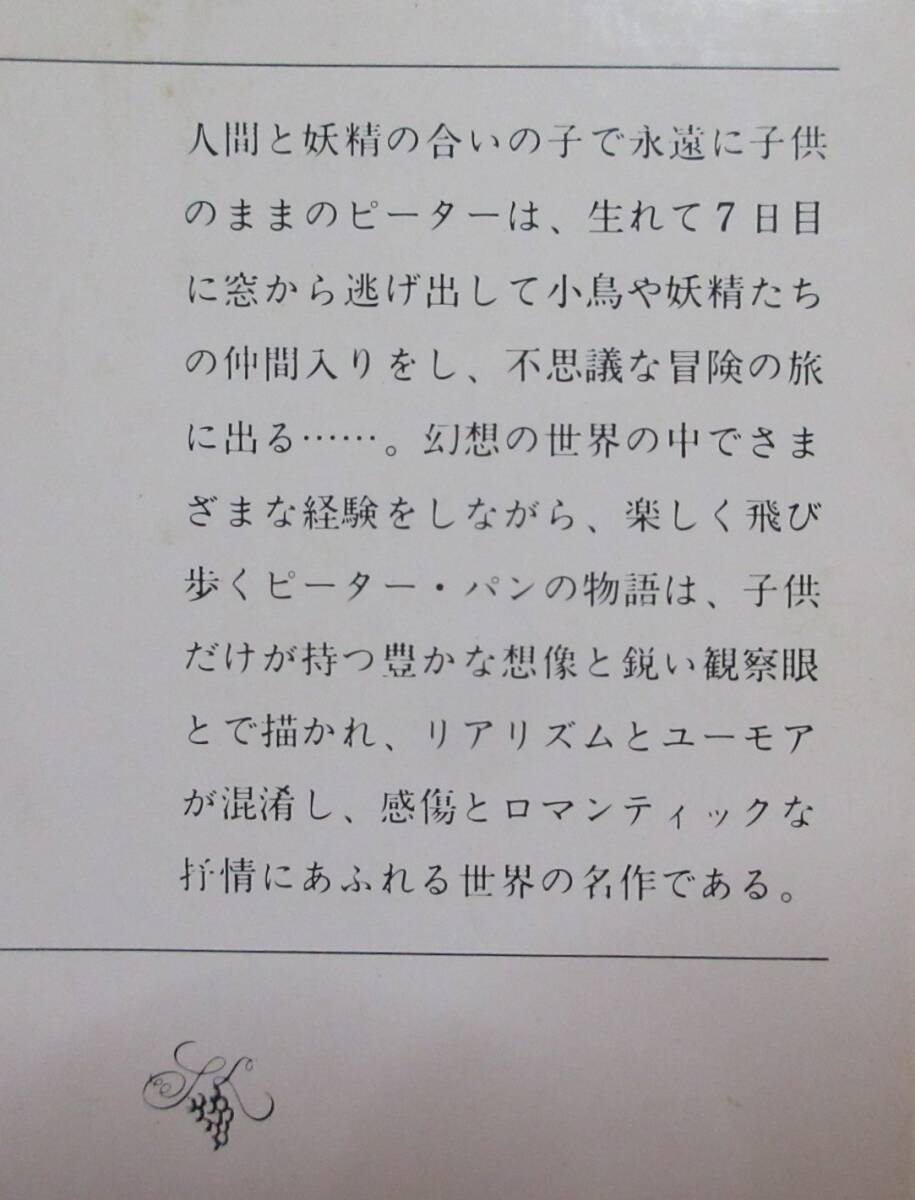 人間と妖精の合いの子で永遠に子供
のままのピーターは、生れて7日目
に窓から逃げ出して小鳥や妖精たち
の仲間入りをし、不思議な冒険の旅
に出る……。幻想の世界の中でさま
ざまな経験をしながら、楽しく飛び
歩くピーター・パンの物語は、子供
だけが持つ豊かな想像と鋭い観察眼
とで描かれ、リアリズムとユーモア
が混淆し、感傷とロマンティックな
抒情にあふれる世界の名作である。